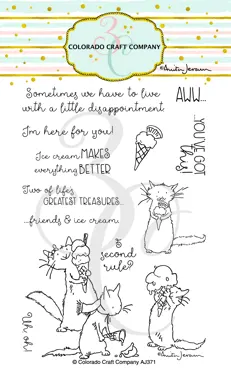 COLORADO CRAFT COMPANY
©Anita Jeram
Sometimes we have to live
with a little disappointment
AWW...
I'm here for you!
...YOU'VE GOT
this!
Ice cream MAKES
everything BETTER
Two of life's
GREATEST TREASURES...
...friends & ice cream.
5
second
rule?
Uh oh!
©Anita Jeram
© Colorado Craft Company AJ371